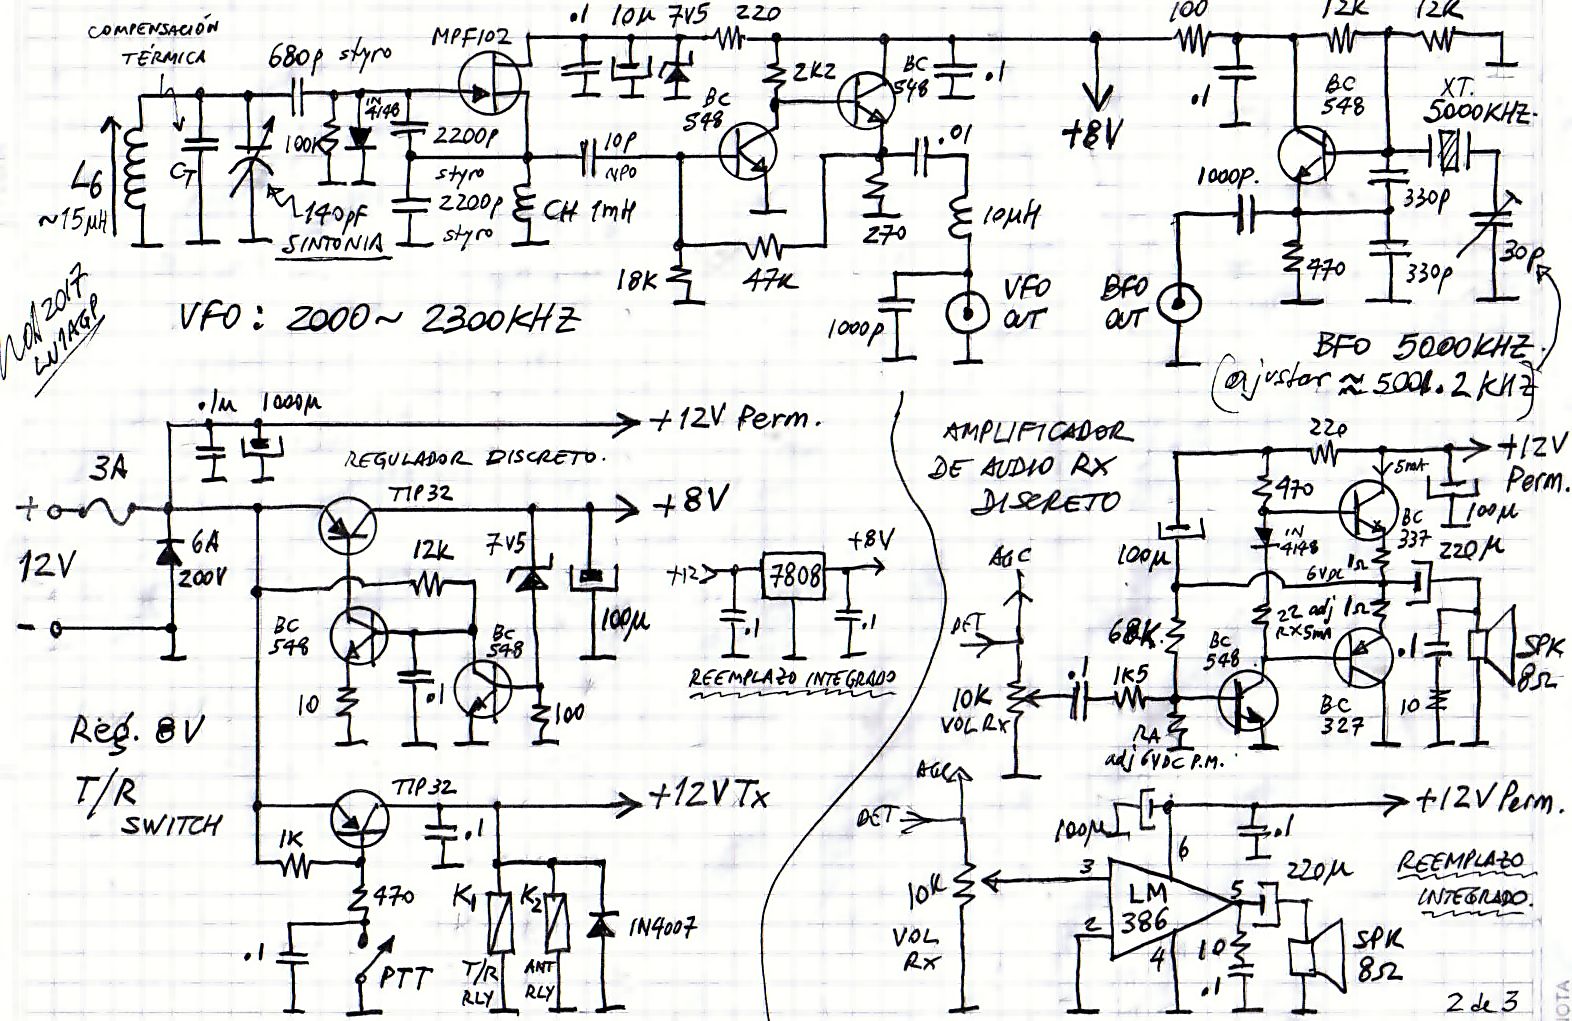 COMPENSACIÓN
TÉRMICA
680p styro
MPF102
.1
10µ
7V5
220
2K2
BC
548
BC
548
.1
+8V
100
12K
12K
.1
BC
548
XT.
5000KHZ.
L6
~15µH
CT
100K
1N
4148
2200p
styro
2200p
styro
140pF
SINTONIA
CH 1mH
10p
NPO
18K
47K
270
.01
10µH
1000p
VFO
OUT
BFO
OUT
1000p.
470
330p
330p
30p
NOV 2017
LU1AGP
VFO: 2000~ 2300KHZ
BFO 5000KHZ.
(ajustar ≈ 5001.2 KHZ)
.1µ
1000µ
+12V Perm.
3A
REGULADOR DISCRETO.
TIP32
+8V
+
12V
-
6A
200V
12K
7V5
100µ
BC
548
BC
548
10
.1
100
+12
7808
+8V
.1
.1
REEMPLAZO INTEGRADO
Reg. 8V
T/R
SWITCH
TIP32
+12V Tx
1K
.1
470
.1
PTT
K1
K2
T/R
RLY
ANT
RLY
1N4007
AMPLIFICADOR
DE AUDIO RX
DISCRETO
220
+12V
Perm.
5mA
470
BC
337
100µ
100µ
1N
4148
220µ
AGC
6VDC
1Ω
DET
68K
22 adj
RX5mA
1Ω
BC
548
.1
1K5
10K
VOL RX
.1
BC
327
10
SPK
8Ω
RA
adj 6VDC P.M.
AGC
DET
100µ
+12V Perm.
.1
6
3
LM
386
5
220µ
REEMPLAZO
INTEGRADO.
10K
2
4
VOL
RX
10
.1
SPK
8Ω
2 de 3
NOTA